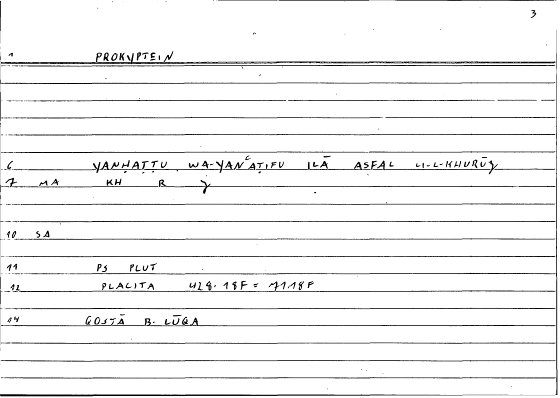 3
1 PROKYPTEIN
6 YANḤAṬṬU WA-YANʿAṬIFU ILĀ ASFAL LI-L-KHURŪǧ
7 MA KH R ǧ
10 SA
11 PS PLUT
12 PLACITA 428.18F = 71.18F
14 QOSṬĀ B. LŪQA